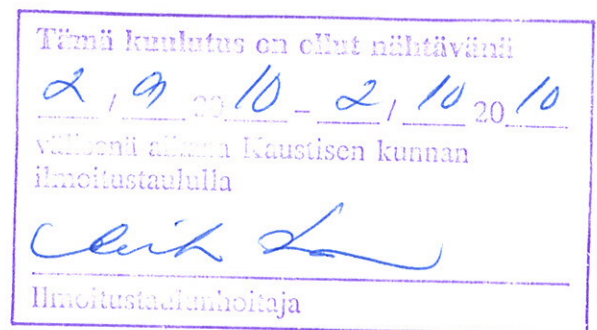 Tämä kuulutus on ollut nähtävänä
2 / 9 20 10 – 2 / 10 20 10
välisenä aikana Kaustisen kunnan
ilmoitustaululla
Ilmoitustaulunhoitaja